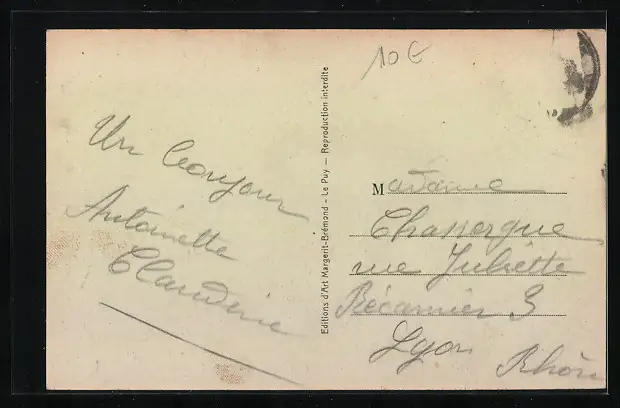 10 €
Un bonjour
Antoinette
Claudine
Editions d'Art Margerit-Brémond - Le Puy — Reproduction interdite
Madame
Chassergue
rue Juliette
Récamier 3
Lyon
Rhône